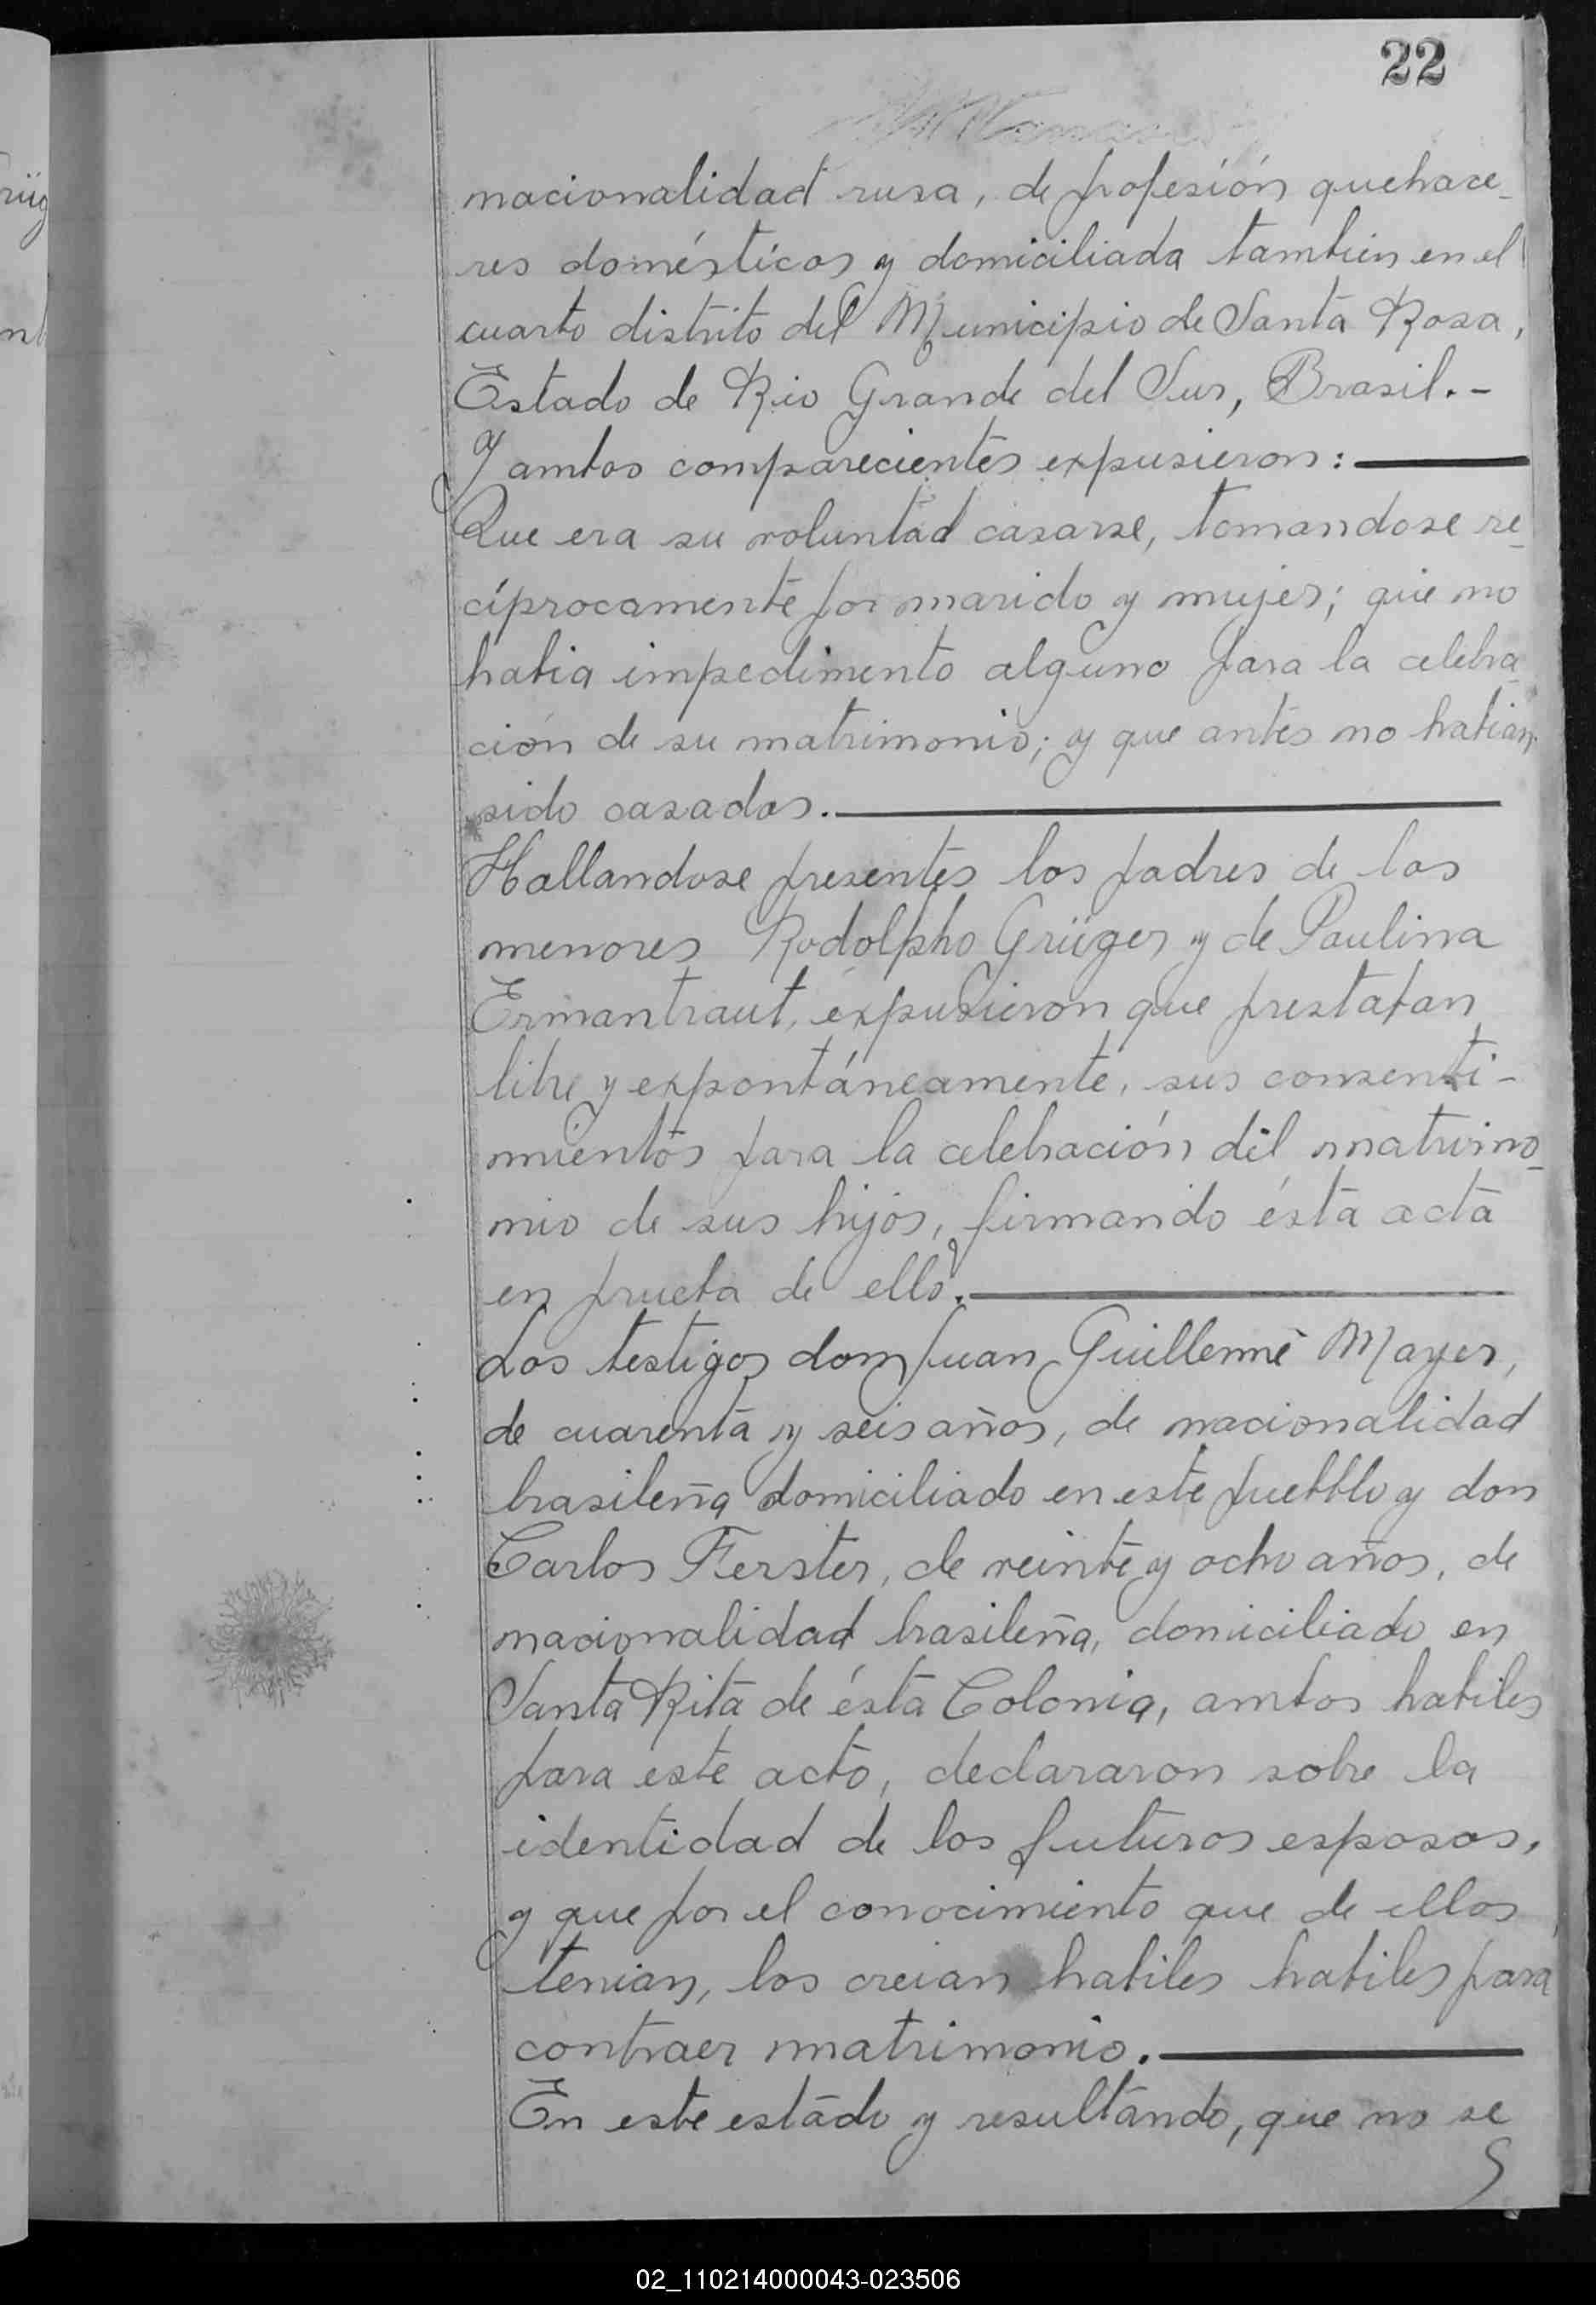 22
nacionalidad rusa, de profesión quehace-
res domésticos y domiciliada tambien en el
cuarto distrito del Municipio de Santa Rosa,
Estado de Rio Grande del Sur, Brasil.-
Y ambos comparecientes expusieron:
Que era su voluntad casarse, tomandose re-
cíprocamente por marido y mujer; que no
habia impedimento alguno para la celebra-
ción de su matrimonio; y que antes no habian
sido casados.
Hallandose presentes los padres de los
menores Rodolpho Grüger y de Paulina
Ermantraut, expusieron que prestaban
libre y expontáneamente, sus consenti-
mientos para la celebración del matrimo-
nio de sus hijos, firmando ésta acta
en prueba de ello.
Los testigos don Juan Guillerme Mayer,
de cuarenta y seis años, de nacionalidad
brasileña domiciliado en este puebblo y don
Carlos Ferster, de veinte y ocho años, de
nacionalidad brasileña, domiciliado en
Santa Rita de ésta Colonia, ambos habiles
para este acto, declararon sobre la
identidad de los futuros esposos,
y que por el conocimiento que de ellos
tenian, los creian habiles habiles para
contraer matrimonio.
En este estado y resultando, que no se
02_110214000043-023506